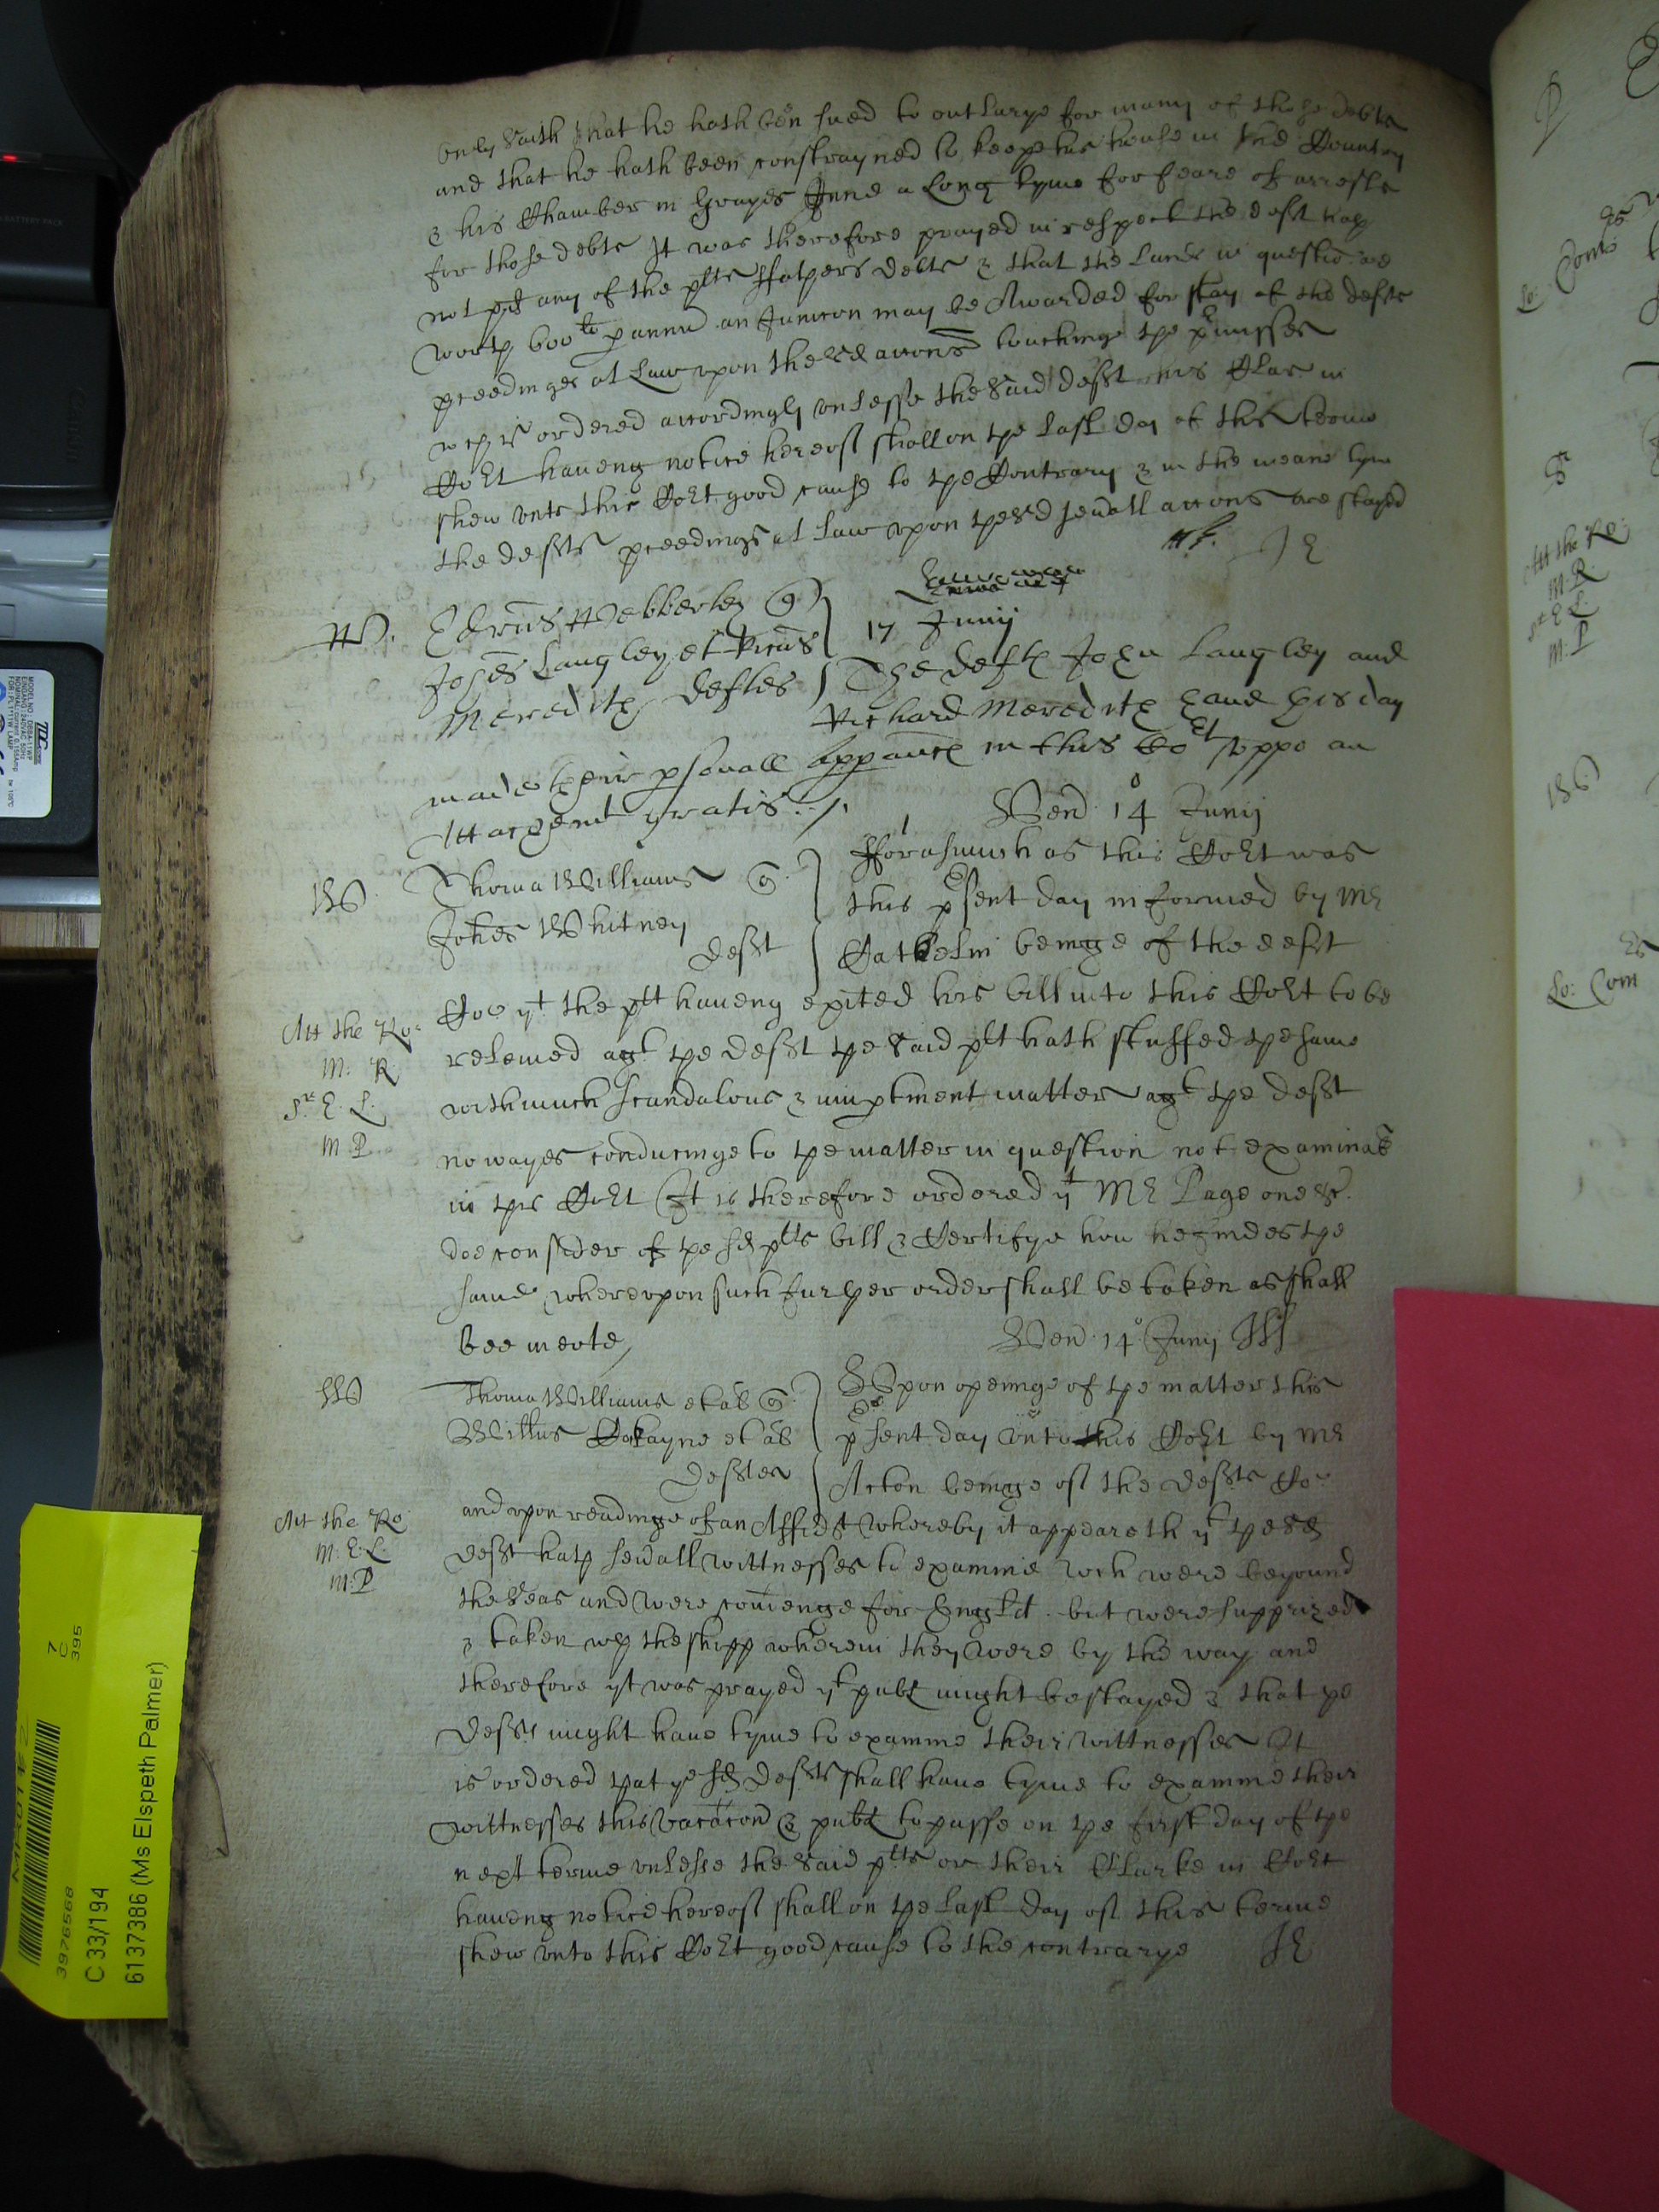 only saith that he hath ben sued to outlarye for many of those debts
and that he hath been constrayned to keepe his house in the Country
& his Chamber in Grayes Inne a long tyme for feare of arrests
for those debts It was therefore prayed in respect the deft hath
not pd any of the plts ffathers debts & that the lands in questiō are
worth 600li p annu an Iniuncon may be Awarded for stay of the defts
pceedinges at Law vpon the sd accons touchinge the pmisses
wch is ordered accordingly vnlesse the said deft his Clar in
Cort haueng notice hereof shall on the last day of this terme
shew vnto this Cort good cause to the Contrary & in the meane tyme
the defts pceedings at law vpon the sd seuall accons are stayed
Edrus Webberley q
Johes Langley et Ricus
Meredith deftes
17 Junij
The deftes John Langley and
Richard Meredith haue this day
made their psonall appance in this Cort vppo an
Attachemt gratis
W
Thoma Williams q
Johes Whitney
deft
Wend 14 Junij
fforasmuch as this Cort was
this psent day informed by Mr
beinge of the deft
Co yt the plt haueng exited his bill into this Cort to be
releiued agt the deft the said plt hath stuffed the same
with much scandalous & imptinent matter agt the deft
no wayes conducinge to the matter in question not examinab
in this Cort It is therefore ordered yt Mr Page one &c
doe consider of the sd plts bill & Certifye how he findes the
same wherevpon such further order shall be taken as shall
bee meete
Att the Ro:
M. R.
Sr. E. L.
M P
W
Thoma Williams et al q
Willus Cokayne et al
deftes
Wend 14 Junij
Vpon openinge of the matter this
psent day vnto this Cort by Mr
Acton beinge of the defts Co
and vpon readinge of an Affidt whereby it appeareth yt the sd
deft hath seuall wittnesses to examine wch were beyound
the Seas and were cominge for Engld but were supprized
& taken wth the shipp wherein they were by the way and
therefore yt was prayed yt publ might be stayed & that the
deft might haue tyme to examine their wittnesses It
is ordered that ye sd defts shall haue tyme to examine their
wittnesses this vacacon & publ to passe on the first day of the
next terme vnlesse the said plts or their Clarke in Cort
haueng notice hereof shall on the last day of this terme
shew vnto this Cort good cause to the contrarye
Att the Ro
M. E. L.
M. P
7
C
395
39765568
C 33/194
6137386 (Ms Elspeth Palmer)
TDC
MODEL NO : DB8A-11W/P
Att the Ro:
M. R.
Sr E L
M. P
Lo: Com